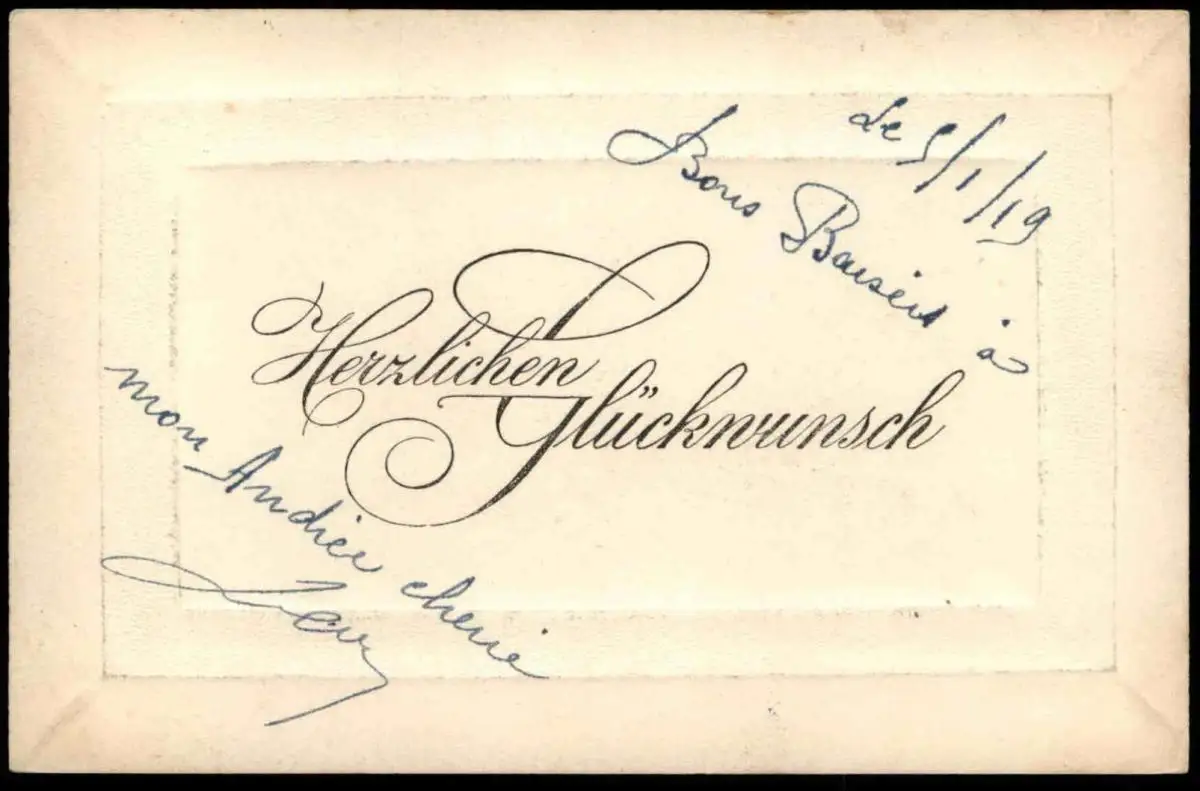 Le 5/1/19
Bons Baisers à
Herzlichen
Glückwunsch
mon Andrée cherie